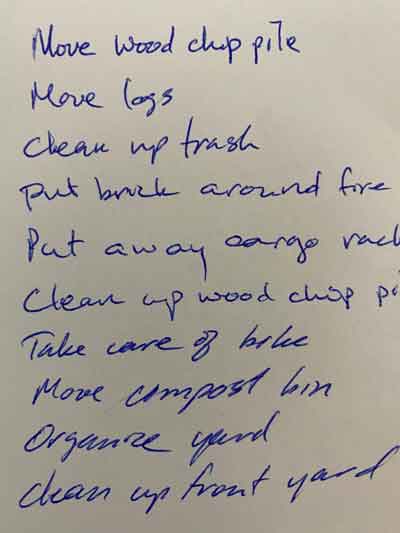 Move wood chip pile
Move logs
Clean up trash
Put brick around fire
Put away cargo rack
Clean up wood chip pi
Take care of bike
Move compost bin
Organize yard
Clean up front yard